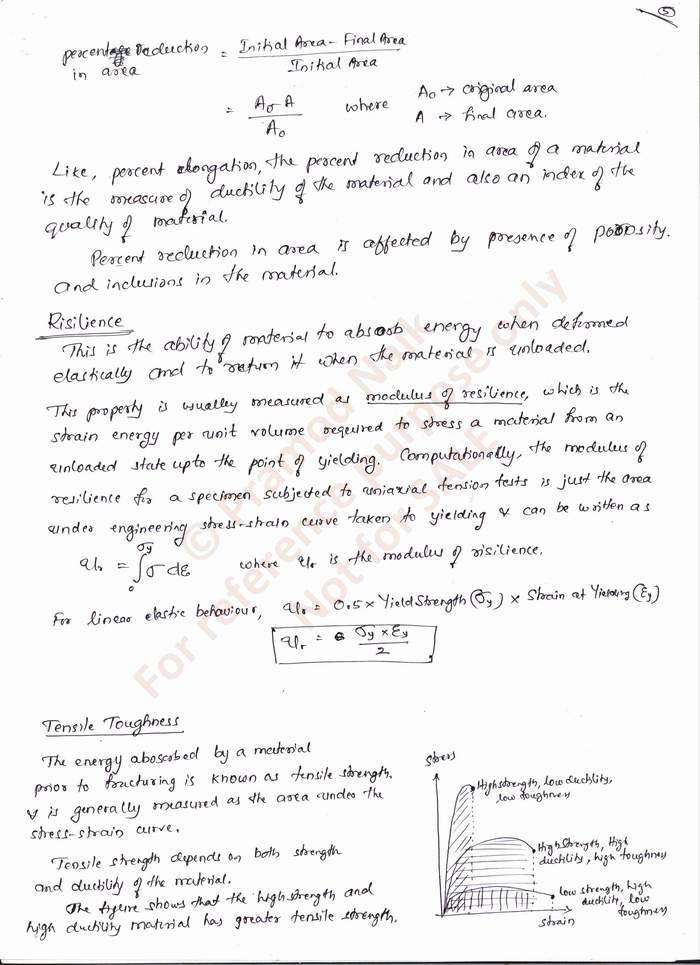 5
percentage Reduction = Initial Area - Final Area
in area Initial Area
= A₀ - A where A₀ → original area
A₀ A → final area.
Like, percent elongation, the percent reduction in area of a material
is the measure of ductility of the material and also an index of the
quality of material.
Percent reduction in area is affected by presence of porosity.
and inclusions in the material.
Risilience
This is the ability of material to absorb energy when deformed
elastically and to return it when the material is unloaded.
This property is usually measured as modulus of resilience, which is the
strain energy per unit volume required to stress a material from an
unloaded state upto the point of yielding. Computationally, the modulus of
resilience for a specimen subjected to uniaxial tension tests is just the area
under engineering stress-strain curve taken to yielding & can be written as
Ur = ∫₀^σy σ dε where Ur is the modulus of risilience.
For linear elastic behaviour, Ur = 0.5 × Yield Strength (σy) × Strain at Yielding (εy)
Ur = σy × εy
2
Tensile Toughness
The energy aboscrbed by a material
prior to fracturing is known as tensile strength.
& is generally measured as the area under the
stress-strain curve.
Tensile strength depends on both strength
and ductility of the material.
The figure shows that the high strength and
high ductility material has greater tensile strength.
stress
High strength, low ductility,
low toughness
High Strength, High
ductility, high toughness
low strength, high
ductility, low
toughness
strain
© Pramod Naik
For reference purpose only
Not for SALE